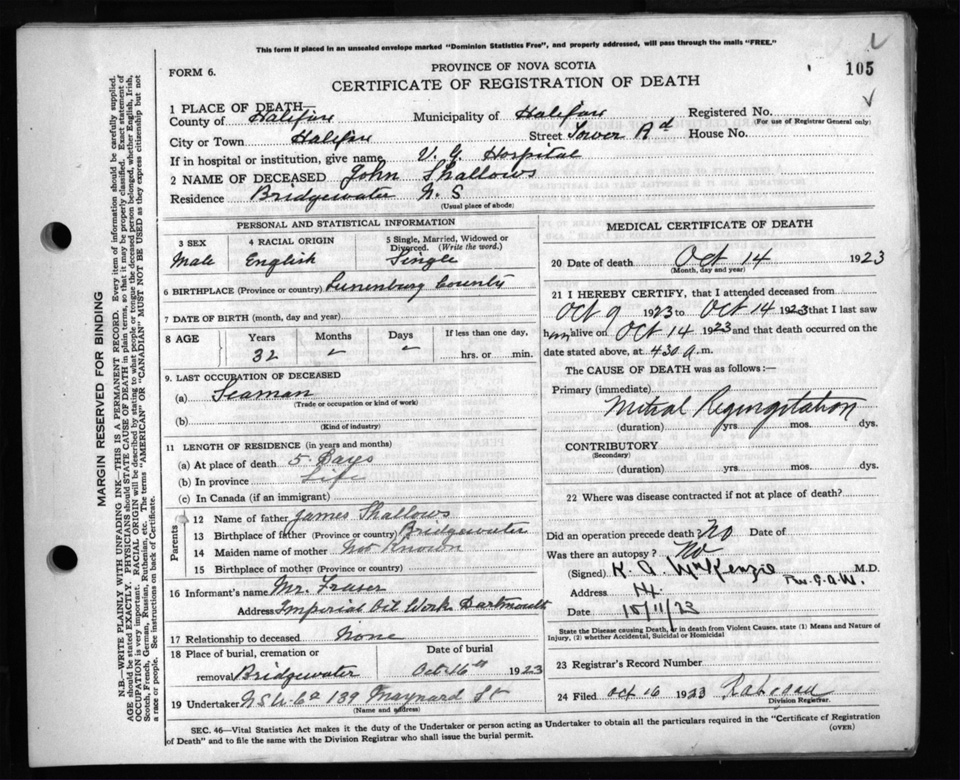 This form if placed in an unsealed envelope marked "Dominion Statistics Free", and properly addressed, will pass through the mails "FREE."
PROVINCE OF NOVA SCOTIA
FORM 6.
CERTIFICATE OF REGISTRATION OF DEATH
105
1 PLACE OF DEATH—
County of Halifax Municipality of Halifax Registered No.
(For use of Registrar General only)
City or Town Halifax Street Tower Rd House No.
If in hospital or institution, give name V. G. Hospital
2 NAME OF DECEASED John Shallows
Residence Bridgewater N. S
(Usual place of abode)
PERSONAL AND STATISTICAL INFORMATION
3 SEX 4 RACIAL ORIGIN 5 Single, Married, Widowed or Divorced. (Write the word.)
Male English Single
6 BIRTHPLACE (Province or country) Lunenburg County
7 DATE OF BIRTH (month, day and year)
8 AGE Years Months Days If less than one day,
32 hrs. or min.
9. LAST OCCUPATION OF DECEASED
(a) Seaman
(Trade or occupation or kind of work)
(b)
(Kind of industry)
11 LENGTH OF RESIDENCE (in years and months)
(a) At place of death 5 Days
(b) In province Life
(c) In Canada (if an immigrant)
Parents
12 Name of father James Shallows
13 Birthplace of father (Province or country) Bridgewater
14 Maiden name of mother Not Known
15 Birthplace of mother (Province or country)
16 Informant's name Mr. Fraser
Address Imperial Oil Works Dartmouth
17 Relationship to deceased None
18 Place of burial, cremation or removal Bridgewater
Date of burial Oct 16th 1923
19 Undertaker 139 Maynard St
(Name and address)
MEDICAL CERTIFICATE OF DEATH
20 Date of death Oct 14 1923
(Month, day and year)
21 I HEREBY CERTIFY, that I attended deceased from
Oct 9 1923 to Oct 14 1923 that I last saw
him alive on Oct 14 1923 and that death occurred on
date stated above, at 4 30 a. m.
The CAUSE OF DEATH was as follows:—
Primary (immediate)
Mitral Regurgitation
(duration) yrs. mos. dys.
CONTRIBUTORY
(Secondary)
(duration) yrs. mos. dys.
22 Where was disease contracted if not at place of death?
Did an operation precede death? No Date of
Was there an autopsy? No
(Signed) K. A. McKenzie M.D.
Address H.
Date 15/11/23
State the Disease causing Death, or in death from Violent Causes, state (1) Means and Nature of
Injury, (2) whether Accidental, Suicidal or Homicidal
23 Registrar's Record Number
24 Filed Oct 16 1923
Division Registrar.
SEC. 46—Vital Statistics Act makes it the duty of the Undertaker or person acting as Undertaker to obtain all the particulars required in the "Certificate of Registration
of Death" and to file the same with the Division Registrar who shall issue the burial permit. (OVER)
MARGIN RESERVED FOR BINDING
N.B.—WRITE PLAINLY WITH UNFADING INK—THIS IS A PERMANENT RECORD. Every item of information should be carefully supplied.
AGE should be stated EXACTLY. PHYSICIANS should STATE CAUSE OF DEATH in plain terms, so that it may be properly classified. Exact statement of
OCCUPATION is very important. RACIAL ORIGIN will be described by stating to what people or tongue the deceased person belonged, whether English, Irish,
Scotch, French, German, Russian, Ruthenian, etc. The terms "AMERICAN" OR "CANADIAN" MUST NOT BE USED as they express citizenship but not
a race or people. See instructions on back of Certificate.